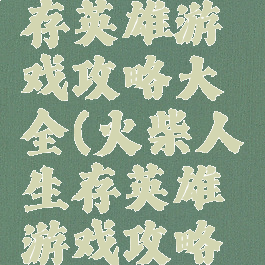 存英雄游
戏攻略大
全(火柴人
生存英雄
游戏攻略